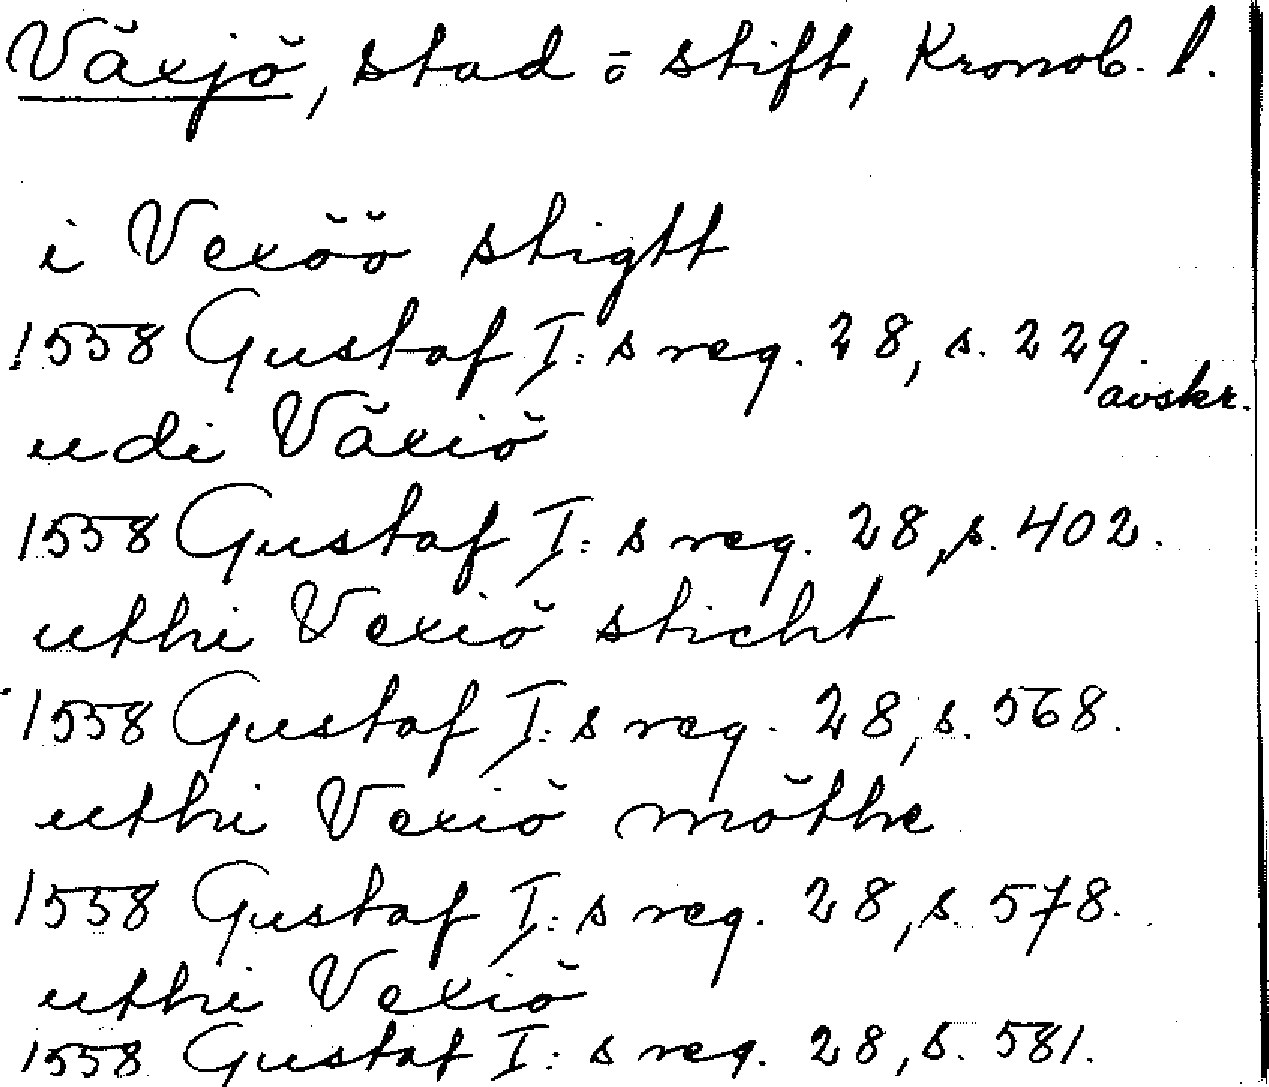 Växjö, stad o stift, Kronob. l.
i Vexöö stigtt
1558 Gustaf I:s reg. 28, s. 229.
avskr.
udi Växiö
1558 Gustaf I:s reg. 28, s. 402.
uthi Vexiö sticht
1558 Gustaf I:s reg. 28, s. 568.
uthi Vexiö möthe
1558 Gustaf I:s reg. 28, s. 578.
uthi Vexiö
1558 Gustaf I:s reg. 28, s. 581.